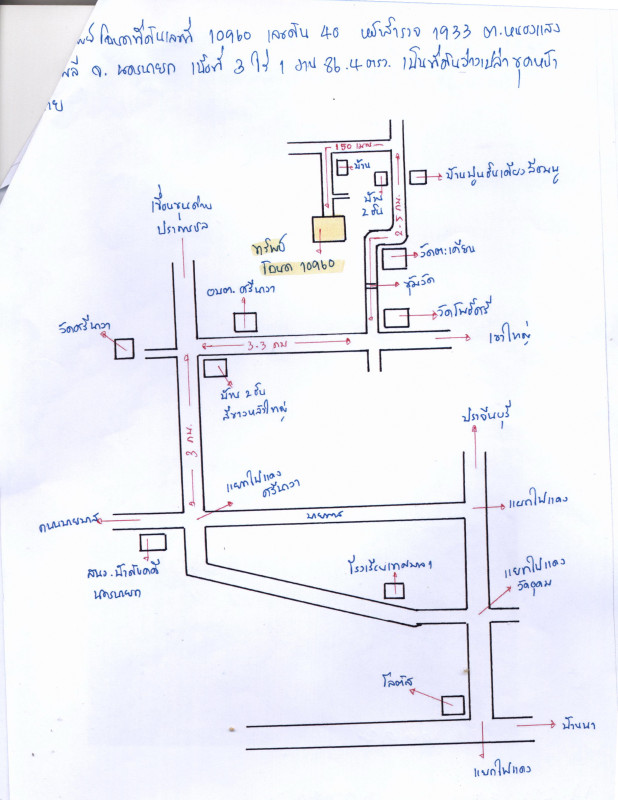 โฉนดที่ดินเลขที่ 10960 เลขดิน 40 หน้าสำรวจ 1933 ต.หนองแสง
จ. นครนายก เนื้อที่ 3 ไร่ 1 งาน 86.4 ตรว. เป็นที่ดินว่างเปล่า
150 เมตร
บ้าน
บ้าน
2 ชั้น
2-5 กม.
เขื่อนขุนด่าน
ปราการชล
ทรัพย์
โฉนด 10960
วัดตะเคียน
ซุ้มวัด
วัดโพธิ์ศรี
อบต. ศรีนาวา
วัดศรีนาวา
3-3 กม
เขาใหญ่
บ้าน 2 ชั้น
สีขาวหลังใหญ่
3 กม.
ปราจีนบุรี
แยกไฟแดง
ศรีนาวา
แยกไฟแดง
สนง. บังคับคดี
นครนายก
โรงเรียนเทศบาล 1
แยกไฟแดง
วัดอุดม
โลตัส
บ้านนา
แยกไฟแดง